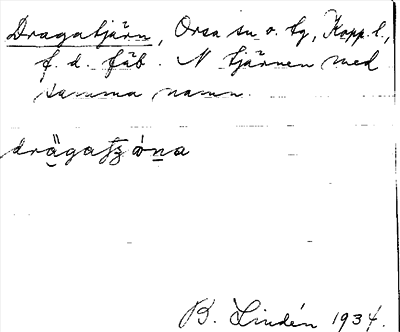 Dragatjärn, Orsa sn o. tg, Kopp. l.,
f. d. fäb. N tjärnen med
samma namn.
drägatʂòna
B. Lindén 1934.